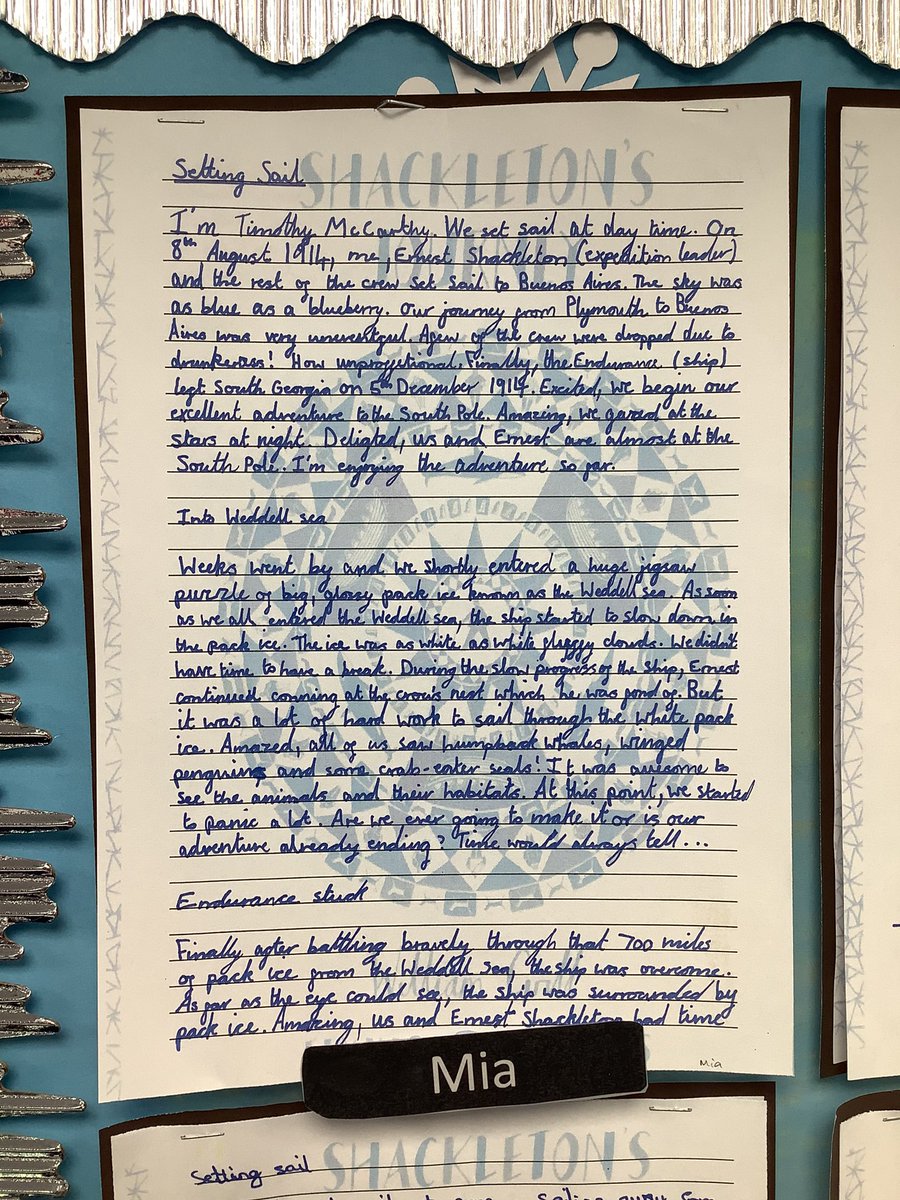 SHACKLETON'S
JOURNEY
Setting Sail
I'm Timothy McCarthy. We set sail at day time. On
8th August 1914, me, Ernest Shackleton (expedition leader)
and the rest of the crew set sail to Buenos Aires. The sky was
as blue as a blueberry. Our journey from Plymouth to Buenos
Aires was very uneventful. Afew of the crew were dropped due to
! How unproffitional. Finally, the Endurance (ship)
left South Georgia on 5th December 1914. Excited, we begin our
excellent adventure to the South Pole. Amazing, we gazed at the
stars at night. Deligted, us and Ernest are almost at the
South Pole. I'm enjoying the adventure so far.
Into Weddell sea
Weeks went by and we shortly entered a huge jigsaw
puzzle of big, glossy pack ice known as the Weddell sea. As soon
as we all entered the Weddell sea, the ship started to slow down in
the pack ice. The ice was as white as white fluffy clouds. We didn't
have time to have a break. During the slow progress of the ship, Ernest
continued conning at the crow's nest which he was fond of. But
it was a lot of hard work to sail through the white pack
ice. Amazed, all of us saw humpback whales, winged
penguins and some crab-eater seals! It was awesome to
see the animals and their habitats. At this point, we started
to panic a lot. Are we ever going to make it or is our
adventure already ending? Time would always tell...
Endurance stuck
Finally after battling bravely through that 700 miles
of pack ice from the Weddell Sea, the ship was overcome.
As far as the eye could see, the ship was surrounded by
pack ice. Amazing, us and Ernest Shackleton had time
William Grill
Mia
Mia
SHACKLETON'S
Setting sail